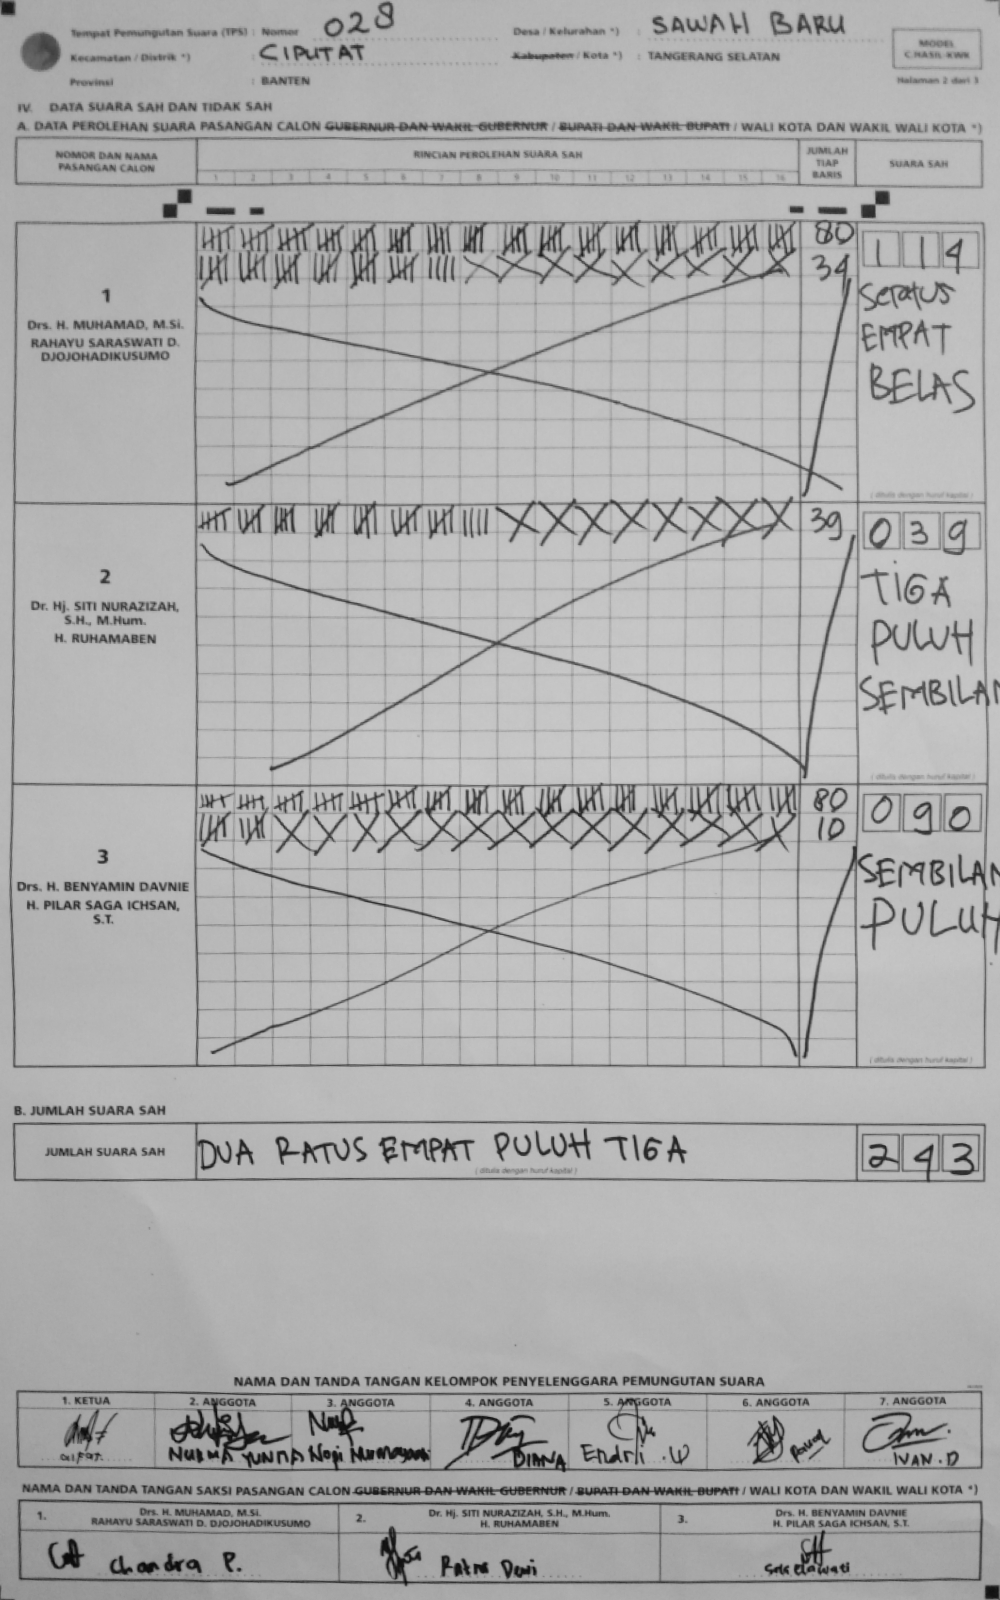 Tempat Pemungutan Suara (TPS) : Nomor 028 Desa / Kelurahan *) : SAWAH BARU
Kecamatan / Distrik *) : CIPUTAT Kabupaten / Kota *) : TANGERANG SELATAN
Provinsi : BANTEN
MODEL
C.HASIL-KWK
Halaman 2 dari 3
IV. DATA SUARA SAH DAN TIDAK SAH
A. DATA PEROLEHAN SUARA PASANGAN CALON GUBERNUR DAN WAKIL GUBERNUR / BUPATI DAN WAKIL BUPATI / WALI KOTA DAN WAKIL WALI KOTA *)
NOMOR DAN NAMA
PASANGAN CALON
RINCIAN PEROLEHAN SUARA SAH
1 2 3 4 5 6 7 8 9 10 11 12 13 14 15 16
JUMLAH
TIAP
BARIS
SUARA SAH
1
Drs. H. MUHAMAD, M.Si.
RAHAYU SARASWATI D.
DJOJOHADIKUSUMO
80
34
114
SERATUS
EMPAT
BELAS
( ditulis dengan huruf kapital )
2
Dr. Hj. SITI NURAZIZAH,
S.H., M.Hum.
H. RUHAMABEN
39
039
TIGA
PULUH
SEMBILAN
( ditulis dengan huruf kapital )
3
Drs. H. BENYAMIN DAVNIE
H. PILAR SAGA ICHSAN,
S.T.
80
10
090
SEMBILAN
PULUH
( ditulis dengan huruf kapital )
B. JUMLAH SUARA SAH
JUMLAH SUARA SAH DUA RATUS EMPAT PULUH TIGA 243
( ditulis dengan huruf kapital )
NAMA DAN TANDA TANGAN KELOMPOK PENYELENGGARA PEMUNGUTAN SUARA
1. KETUA 2. ANGGOTA 3. ANGGOTA 4. ANGGOTA 5. ANGGOTA 6. ANGGOTA 7. ANGGOTA
DIANA Endrli .W IVAN .D
NAMA DAN TANDA TANGAN SAKSI PASANGAN CALON GUBERNUR DAN WAKIL GUBERNUR / BUPATI DAN WAKIL BUPATI / WALI KOTA DAN WAKIL WALI KOTA *)
1. Drs. H. MUHAMAD, M.Si.
RAHAYU SARASWATI D. DJOJOHADIKUSUMO
2. Dr. Hj. SITI NURAZIZAH, S.H., M.Hum.
H. RUHAMABEN
3. Drs. H. BENYAMIN DAVNIE
H. PILAR SAGA ICHSAN, S.T.
Chandra P.
Ratna Dewi